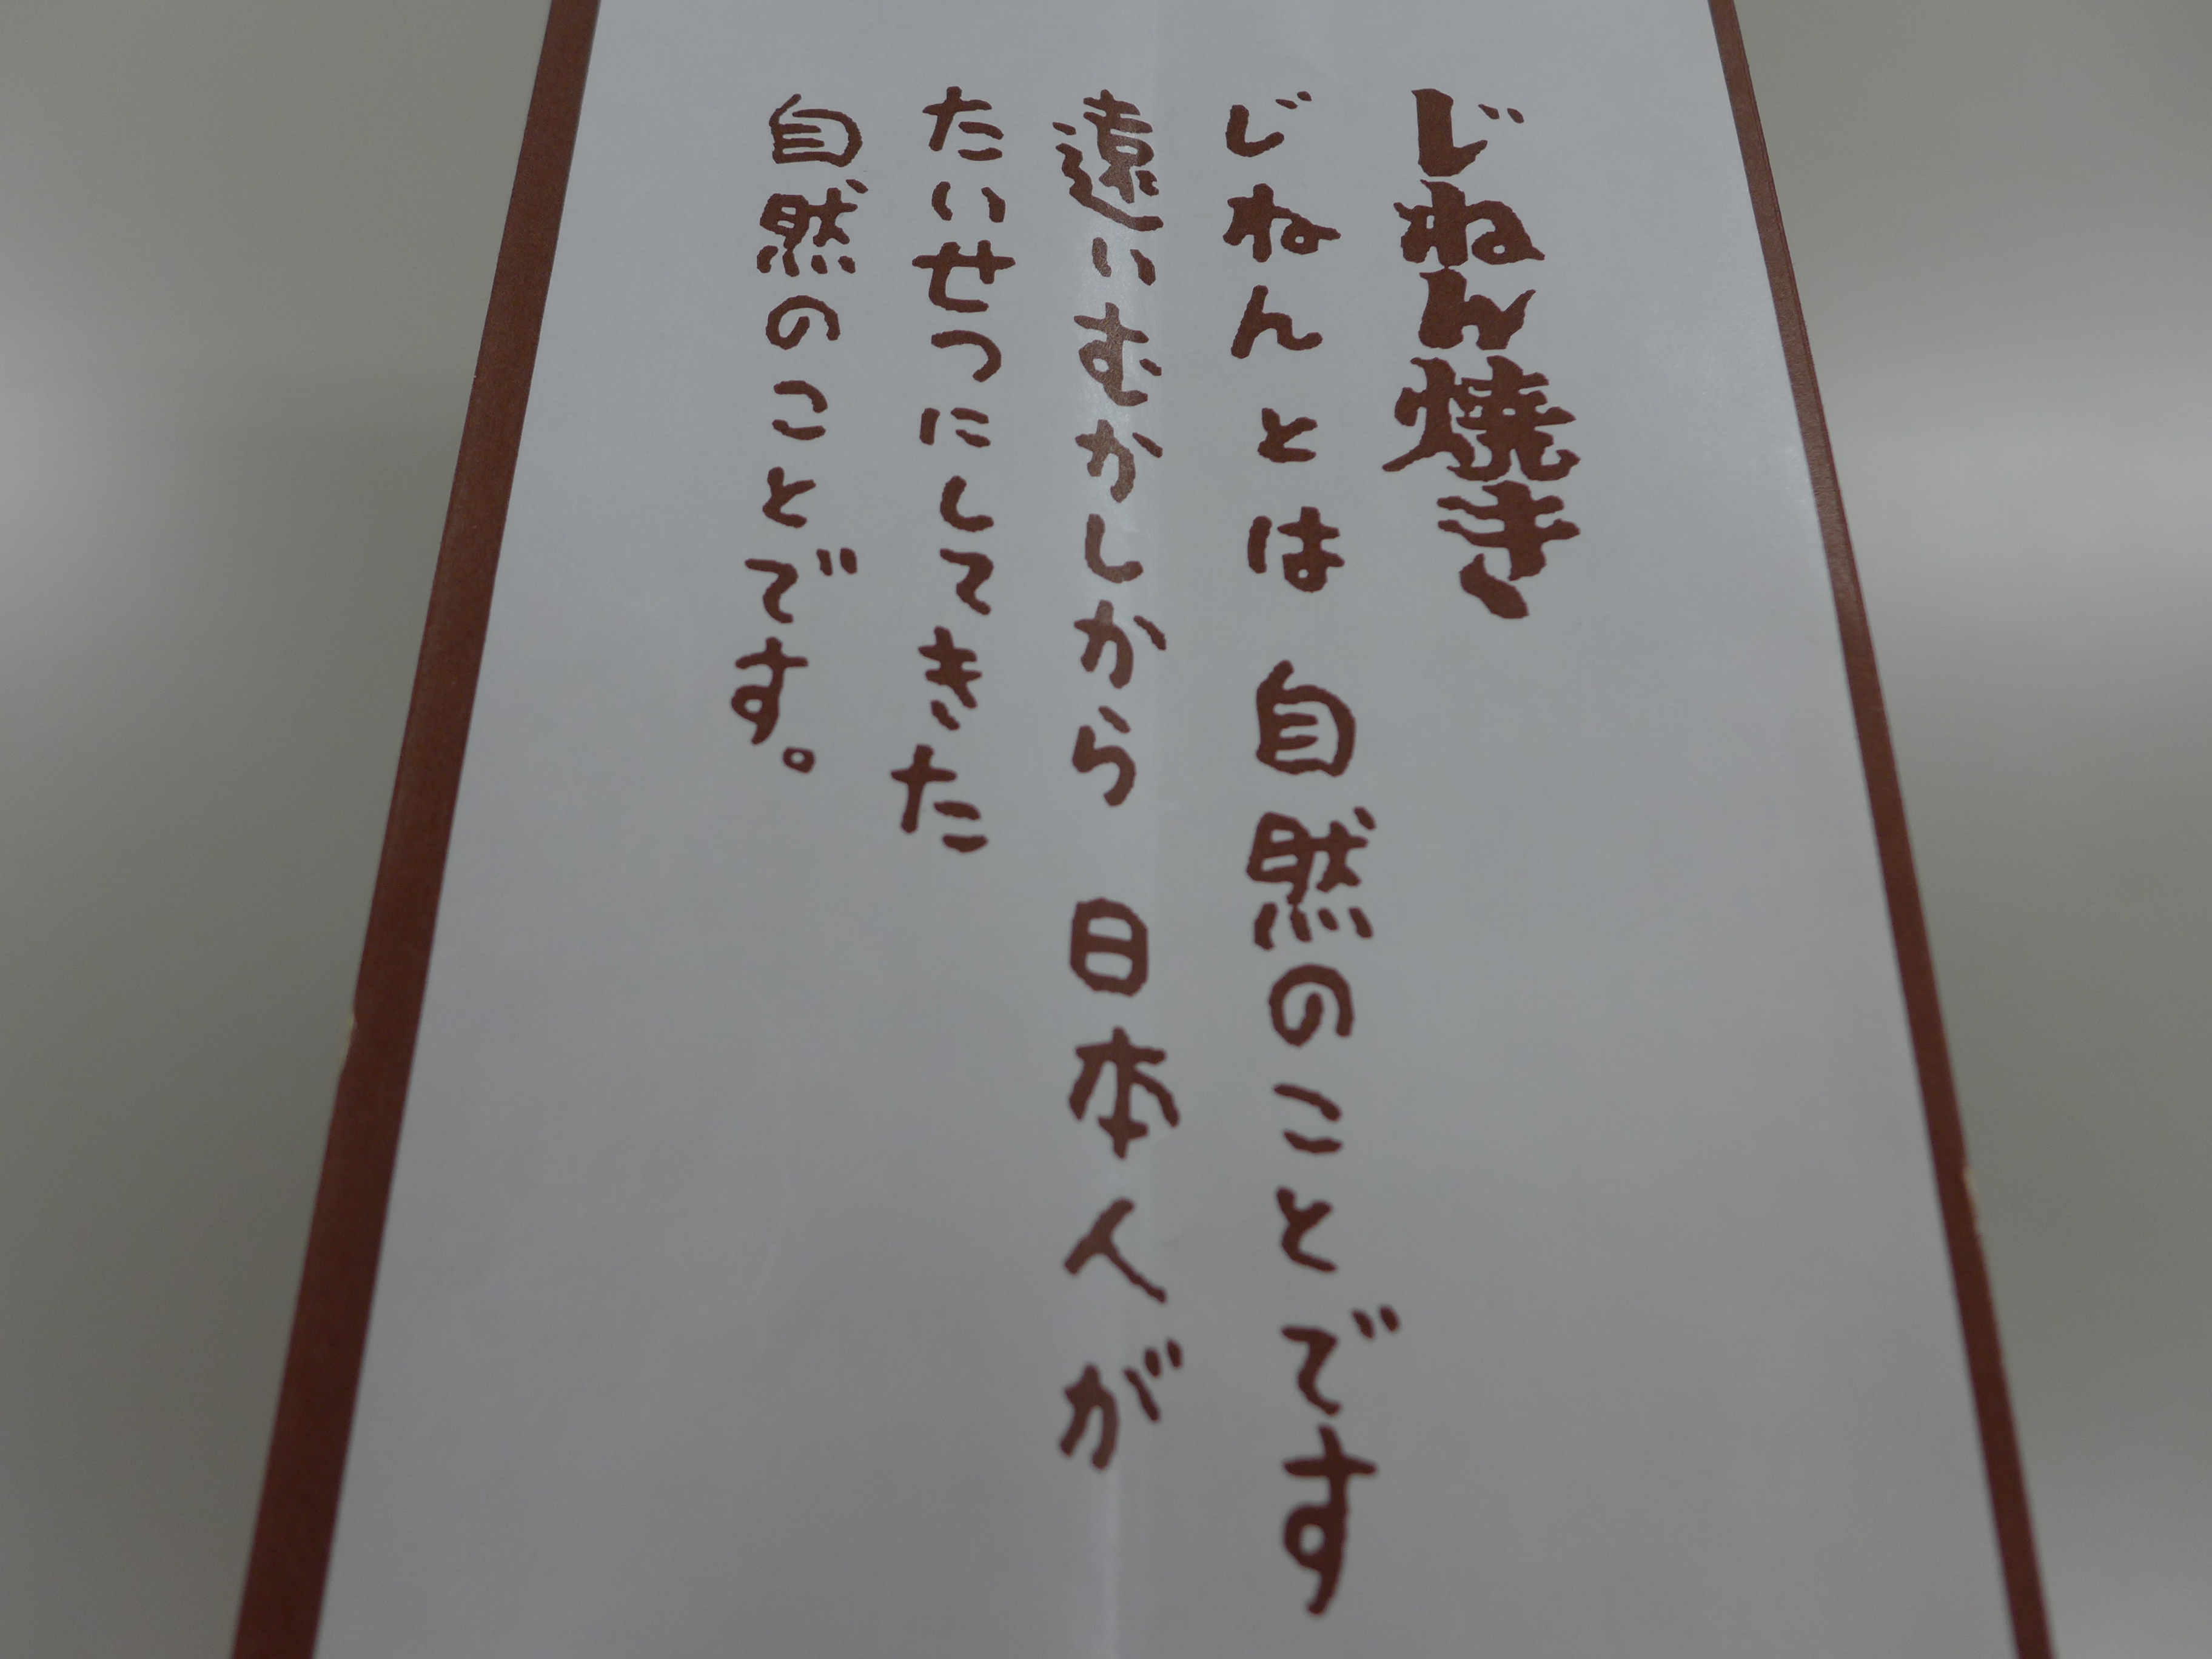 じねん焼き
じねんとは 自然のことです
遠いむかしから 日本人が
たいせつにしてきた
自然のことです。